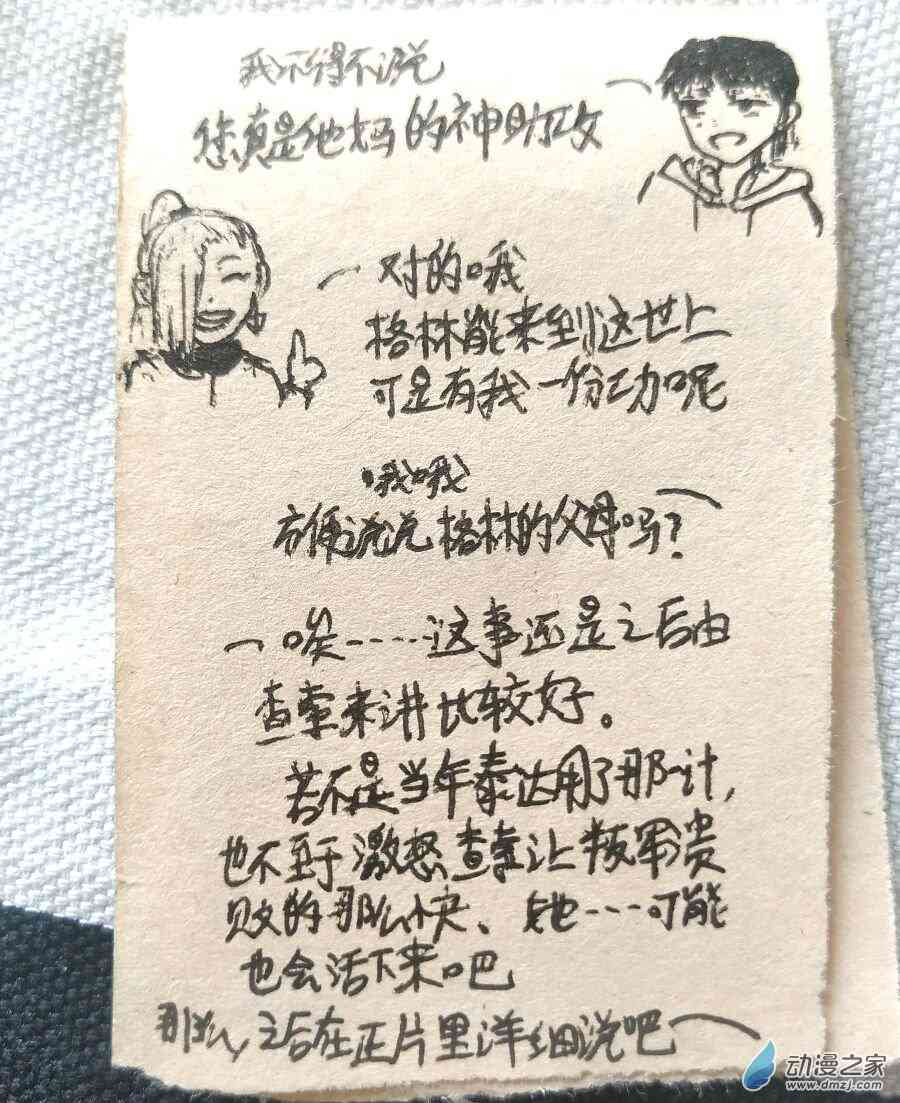 我不得不说
您真是他妈的神助攻
对的哦
格林能来到这世上
可是有我一份功呢
哦哦
方便说说格林的父母吗？
唉……这事还是之后由
查索来讲比较好。
若不是当年泰达用了那一计，
也不至于激怒查索让叛军溃
败的那么快、她……可能
也会活下来吧
那么，之后在正片里详细说吧
动漫之家
www.dmzj.com